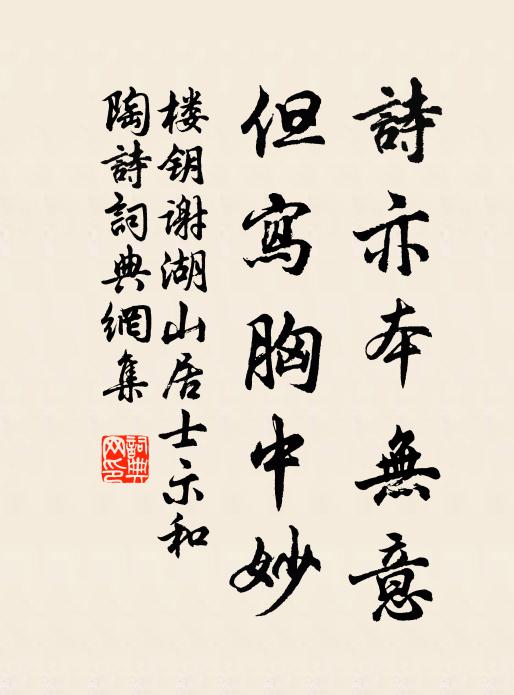 詩亦本無意
但寫胸中妙
楼钥谢湖山居士示和
陶詩詞典網集
詞典网印